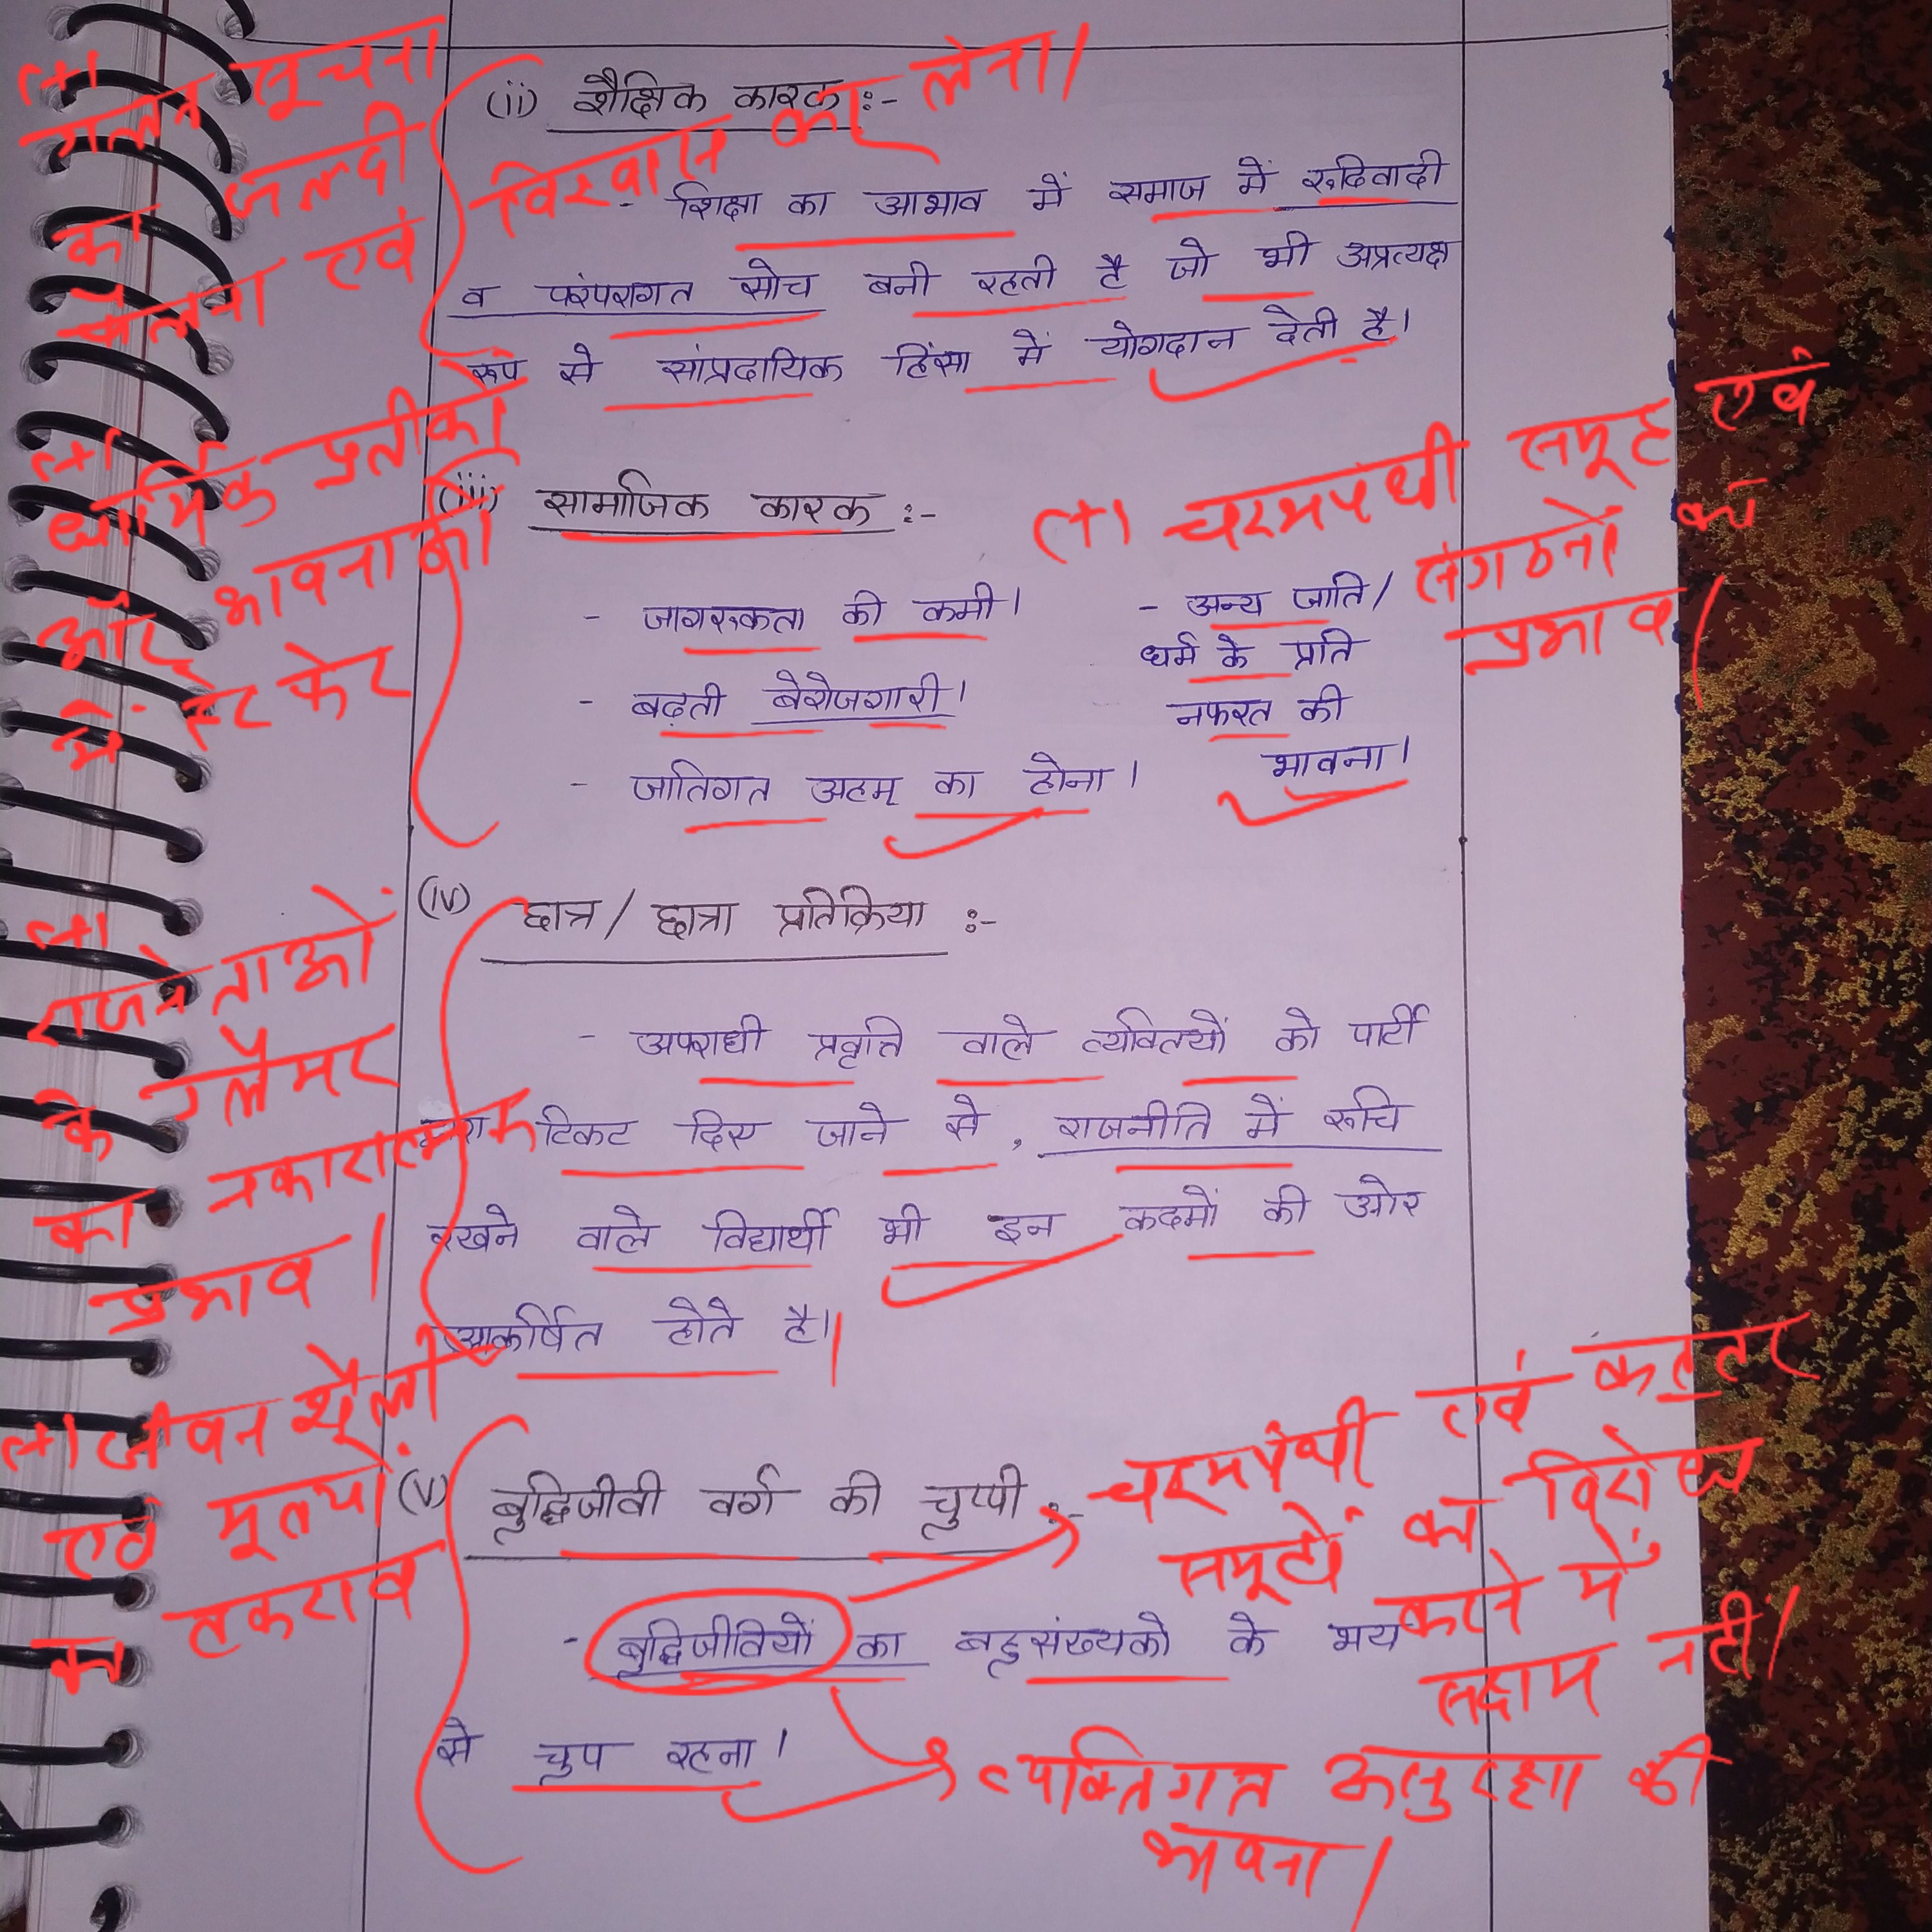 (ii) शैक्षिक कारक :-
- शिक्षा का आभाव में समाज में रूढिवादी
व परंपरागत सोच बनी रहती है जो भी अप्रत्यक्ष
रूप से सांप्रदायिक हिंसा में योगदान देती है।
(+) गलत सूचना
का जल्दी
फैलना एवं
विश्वास कर लेना।
(iii) सामाजिक कारक :-
- जागरुकता की कमी।
- बढ़ती बेरोजगारी।
- जातिगत अहम् का होना।
- अन्य जाति/
धर्म के प्रति
नफरत की
भावना।
(+) चरमपंथी समूह एवं
संगठनों का
प्रभाव।
(+)
धार्मिक प्रतीकों
और भावनाओं
में हेर फेर
(iv) छात्र/ छात्रा प्रतिक्रिया :-
- अपराधी प्रवृत्ति वाले व्यक्तियों को पार्टी
द्वारा टिकट दिए जाने से, राजनीति में रूचि
रखने वाले विद्यार्थी भी इन कदमों की ओर
आकर्षित होते है।
(+)
राजनेताओं
के ग्लैमर
का नकारात्मक
प्रभाव।
(v) बुद्धिजीवी वर्ग की चुप्पी :-
- बुद्धिजीवियों का बहुसंख्यको के भय
से चुप रहना।
(+) जीवन शैली
एवं मूल्यों
का टकराव
चरमपंथी एवं कट्टर
समूहों का विरोध
करने में
सक्षम नहीं।
व्यक्तिगत असुरक्षा की
भावना।